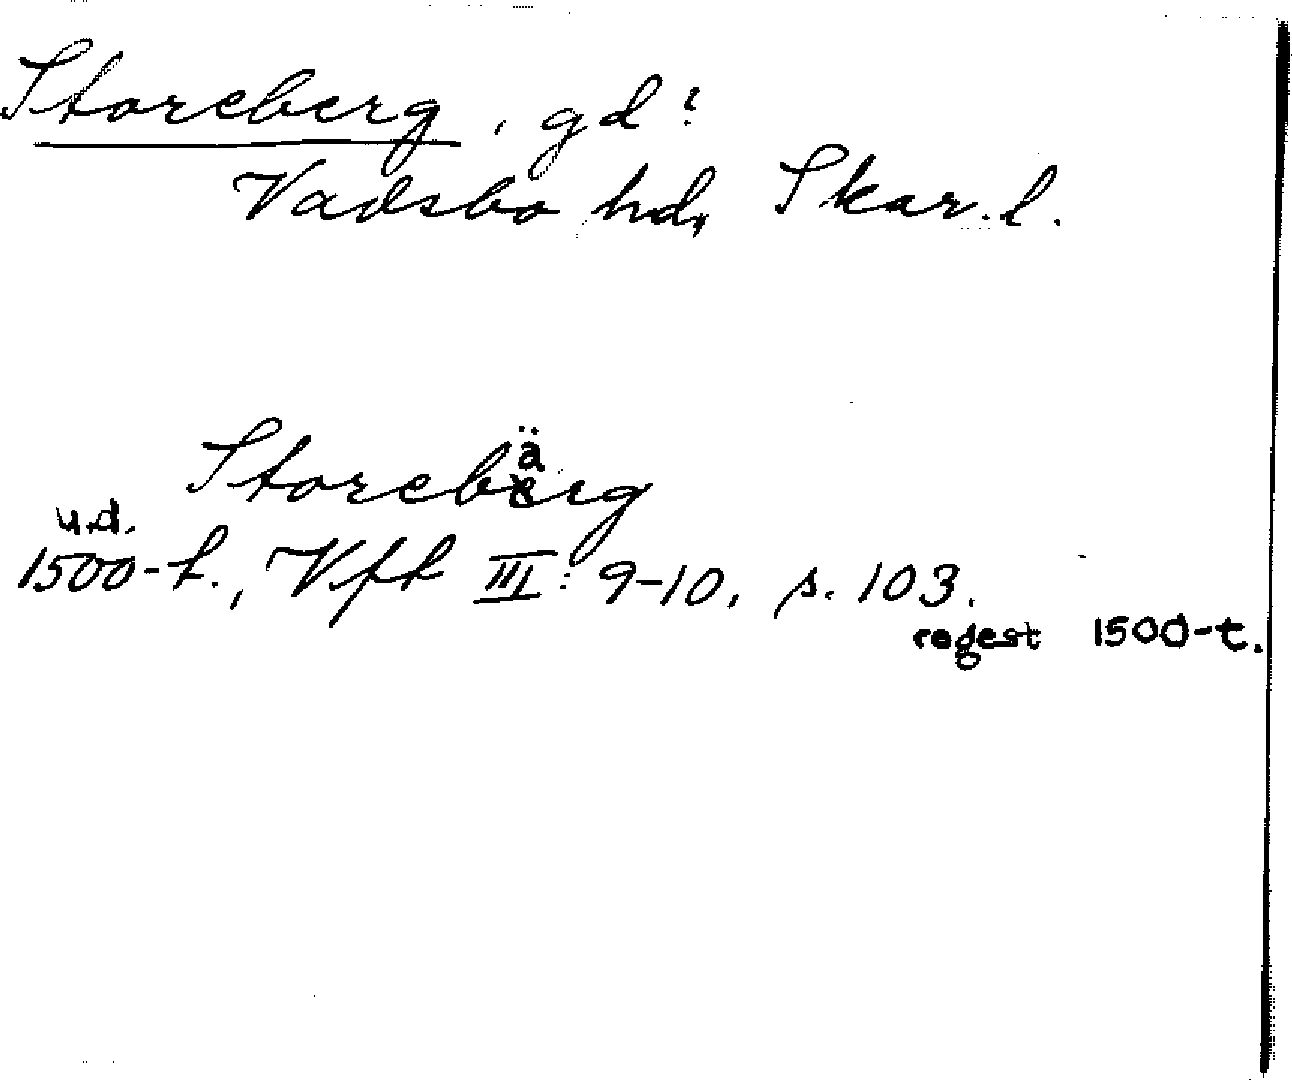 Storeberg, gd?
Vadsbo hd, Skar. l.
Storebärg
u.d.
1500-t., Vft III: 9-10, s. 103.
regest 1500-t.